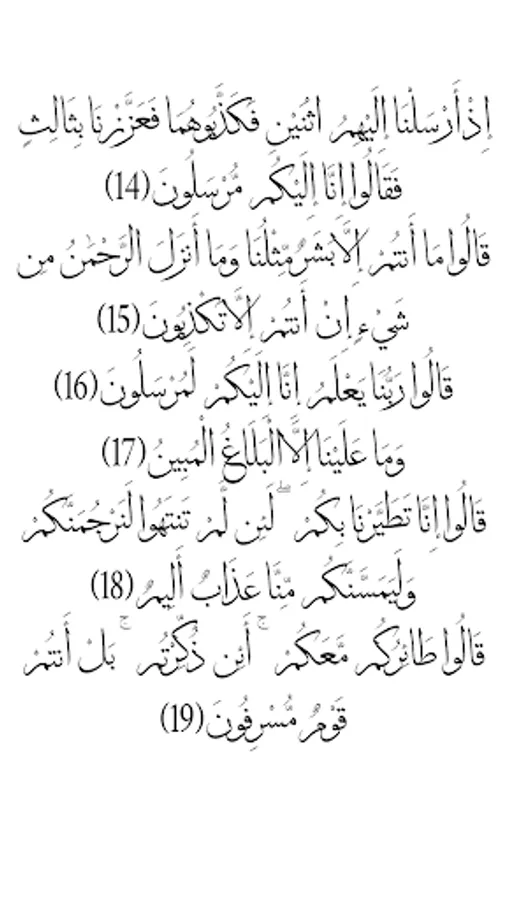 إِذْ أَرْسَلْنَا إِلَيْهِمُ اثْنَيْنِ فَكَذَّبُوهُمَا فَعَزَّزْنَا بِثَالِثٍ
فَقَالُوا إِنَّا إِلَيْكُم مُّرْسَلُونَ (14)
قَالُوا مَا أَنتُمْ إِلَّا بَشَرٌ مِّثْلُنَا وَمَا أَنزَلَ الرَّحْمَٰنُ مِن
شَيْءٍ إِنْ أَنتُمْ إِلَّا تَكْذِبُونَ (15)
قَالُوا رَبُّنَا يَعْلَمُ إِنَّا إِلَيْكُمْ لَمُرْسَلُونَ (16)
وَمَا عَلَيْنَا إِلَّا الْبَلَاغُ الْمُبِينُ (17)
قَالُوا إِنَّا تَطَيَّرْنَا بِكُمْ ۖ لَئِن لَّمْ تَنتَهُوا لَنَرْجُمَنَّكُمْ
وَلَيَمَسَّنَّكُم مِّنَّا عَذَابٌ أَلِيمٌ (18)
قَالُوا طَائِرُكُم مَّعَكُمْ ۚ أَئِن ذُكِّرْتُم ۚ بَلْ أَنتُمْ
قَوْمٌ مُّسْرِفُونَ (19)